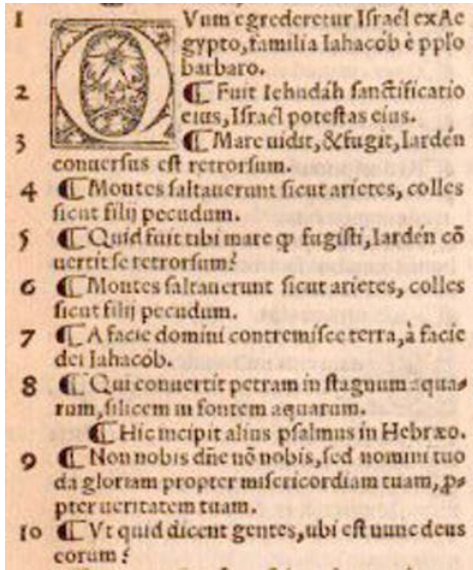 1 QVum egrederetur Israêl ex Ae
gypto, familia Iahacób è pplo
barbaro.
2 ¶ Fuit Iehudáh sanctificatio
eius, Israêl potestas eius.
3 ¶ Mare uidit, & fugit, Iardén
conuersus est retrorsum.
4 ¶ Montes saltauerunt sicut arietes, colles
sicut filij pecudum.
5 ¶ Quid fuit tibi mare qp fugisti, Iardén cõ
uertit se retrorsum?
6 ¶ Montes saltauerunt sicut arietes, colles
sicut filij pecudum.
7 ¶ A facie domini contremisce terra, à facie
dei Iahacób.
8 ¶ Qui conuertit petram in stagnum aqua-
rum, silicem in fontem aquarum.
¶ Hic incipit alius psalmus in Hebræo.
9 ¶ Non nobis dñe nõ nobis, sed nomini tuo
da gloriam propter misericordiam tuam, ꝓ
pter ueritatem tuam.
10 ¶ Vt quid dicent gentes, ubi est nunc deus
eorum?